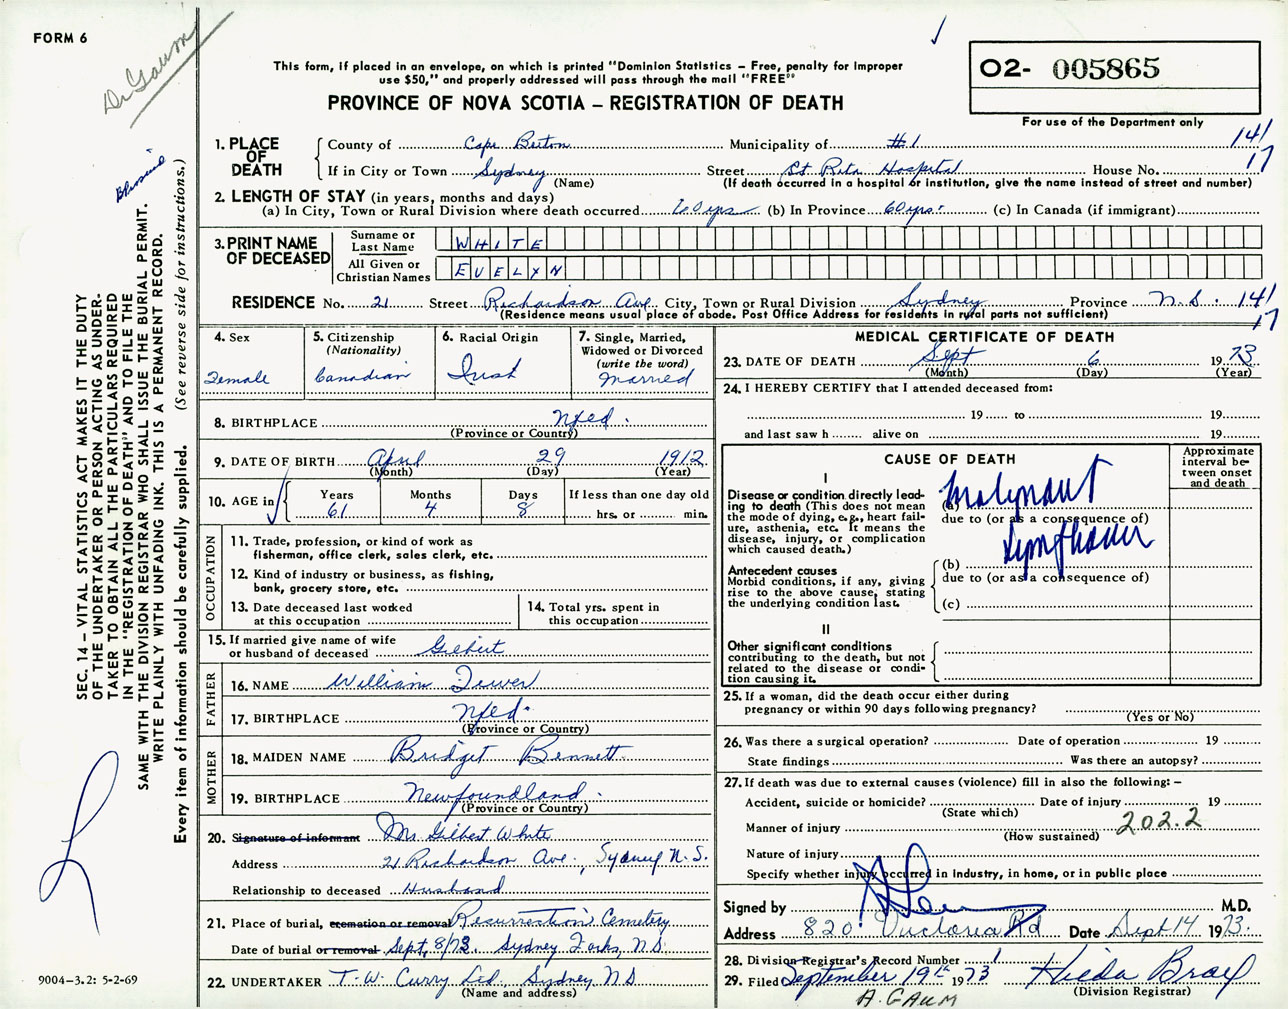 FORM 6
Dr Gaum
This form, if placed in an envelope, on which is printed "Dominion Statistics – Free, penalty for improper
use $50," and properly addressed will pass through the mail "FREE"
PROVINCE OF NOVA SCOTIA – REGISTRATION OF DEATH
O2- 005865
For use of the Department only
1. PLACE OF DEATH
County of Cape Breton Municipality of #1 141
If in City or Town Sydney Street St Rita Hospital House No. 17
(Name) (If death occurred in a hospital or institution, give the name instead of street and number)
2. LENGTH OF STAY (in years, months and days)
(a) In City, Town or Rural Division where death occurred 60 yrs (b) In Province 60 yrs. (c) In Canada (if immigrant)
3. PRINT NAME OF DECEASED
Surname or Last Name WHITE
All Given or Christian Names EVELYN
RESIDENCE No. 21 Street Richardson Ave. City, Town or Rural Division Sydney Province N.S. 141
(Residence means usual place of abode. Post Office Address for residents in rural parts not sufficient) 17
SEC. 14 – VITAL STATISTICS ACT MAKES IT THE DUTY
OF THE UNDERTAKER OR PERSON ACTING AS UNDER-
TAKER TO OBTAIN ALL THE PARTICULARS REQUIRED
IN THE "REGISTRATION OF DEATH" AND TO FILE THE
SAME WITH THE DIVISION REGISTRAR WHO SHALL ISSUE THE BURIAL PERMIT.
WRITE PLAINLY WITH UNFADING INK. THIS IS A PERMANENT RECORD.
Every item of information should be carefully supplied. (See reverse side for instructions.)
4. Sex
Female
5. Citizenship
(Nationality)
Canadian
6. Racial Origin
Irish
7. Single, Married,
Widowed or Divorced
(write the word)
Married
8. BIRTHPLACE Nfld.
(Province or Country)
9. DATE OF BIRTH April 29 1912
(Month) (Day) (Year)
10. AGE in
Years Months Days If less than one day old
61 4 8 hrs. or min.
OCCUPATION
11. Trade, profession, or kind of work as
fisherman, office clerk, sales clerk, etc.
12. Kind of industry or business, as fishing,
bank, grocery store, etc.
13. Date deceased last worked
at this occupation
14. Total yrs. spent in
this occupation
15. If married give name of wife
or husband of deceased Gilbert
FATHER
16. NAME William Tewer
17. BIRTHPLACE Nfld.
(Province or Country)
MOTHER
18. MAIDEN NAME Bridget Bennett
19. BIRTHPLACE Newfoundland.
(Province or Country)
20. Signature of informant Mr. Gilbert White
Address 21 Richardson Ave., Sydney N.S.
Relationship to deceased Husband
21. Place of burial, cremation or removal Resurrection Cemetery
Date of burial or removal Sept. 8/73. Sydney Forks, N.S.
22. UNDERTAKER T.W. Curry Ltd., Sydney NS
(Name and address)
MEDICAL CERTIFICATE OF DEATH
23. DATE OF DEATH Sept 6 1973
(Month) (Day) (Year)
24. I HEREBY CERTIFY that I attended deceased from:
19 to 19
and last saw h alive on 19
CAUSE OF DEATH
Approximate
interval be-
tween onset
and death
I
Disease or condition directly lead-
ing to death (This does not mean
the mode of dying, e.g., heart fail-
ure, asthenia, etc. It means the
disease, injury, or complication
which caused death.)
(a) Malignant
due to (or as a consequence of)
Lymphoma
Antecedent causes
Morbid conditions, if any, giving
rise to the above cause, stating
the underlying condition last.
(b)
due to (or as a consequence of)
(c)
II
Other significant conditions
contributing to the death, but not
related to the disease or condi-
tion causing it.
25. If a woman, did the death occur either during
pregnancy or within 90 days following pregnancy?
(Yes or No)
26. Was there a surgical operation? Date of operation 19
State findings Was there an autopsy?
27. If death was due to external causes (violence) fill in also the following: –
Accident, suicide or homicide? Date of injury 19
(State which)
Manner of injury 202.2
(How sustained)
Nature of injury
Specify whether injury occurred in industry, in home, or in public place
Signed by M.D.
Address 820 Victoria Rd Date Sept 14 1973.
28. Division Registrar's Record Number
29. Filed September 19th 1973 Hilda Bray
(Division Registrar)
A. GAUM
9004–3.2: 5-2-69